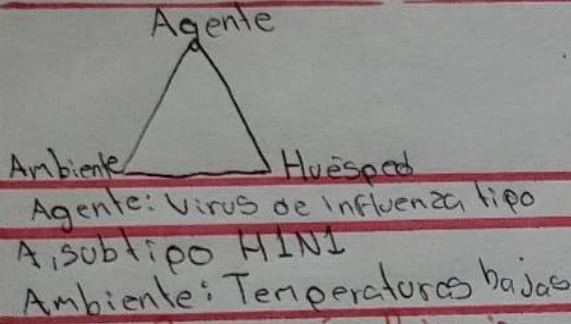 Agente
Ambiente Huésped
Agente: Virus de influenza tipo
A, subtipo H1N1
Ambiente: Temperaturas bajas